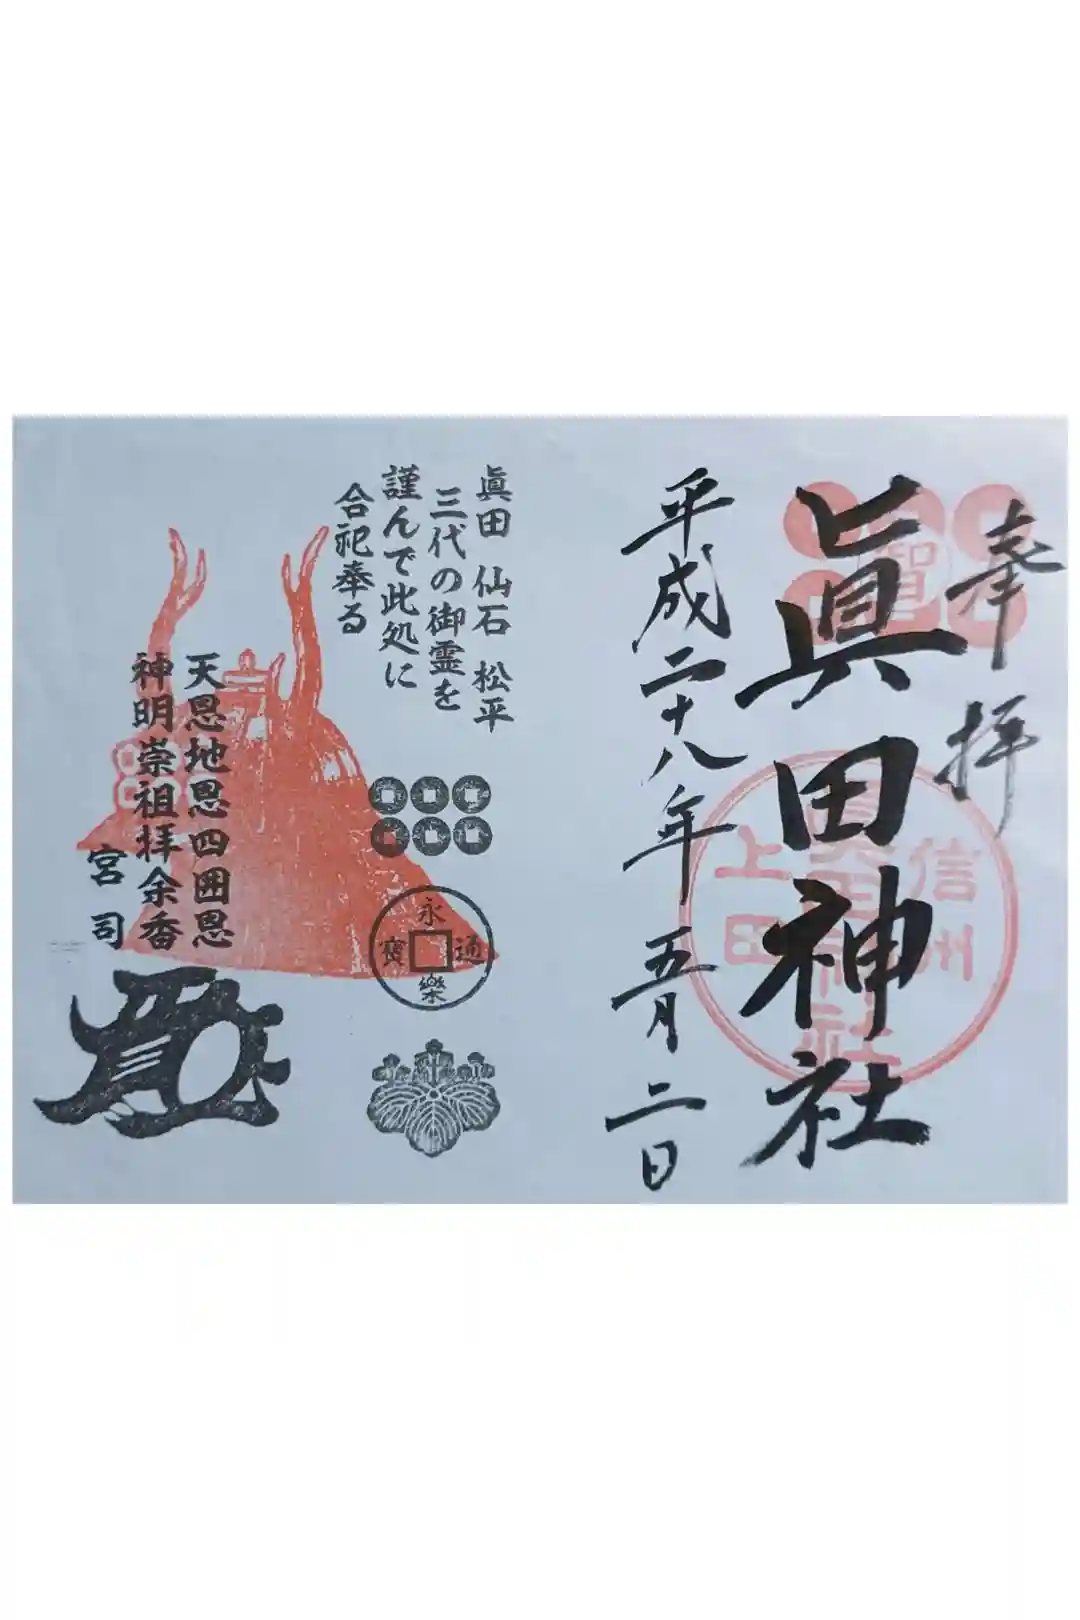 奉拝
眞田神社
平成二十八年五月二日
智
信州
眞田神社
上田
眞田 仙石 松平
三代の御霊を
謹んで此処に
合祀奉る
永樂通寳
天恩地恩四囲恩
神明崇祖拝余香
宮司